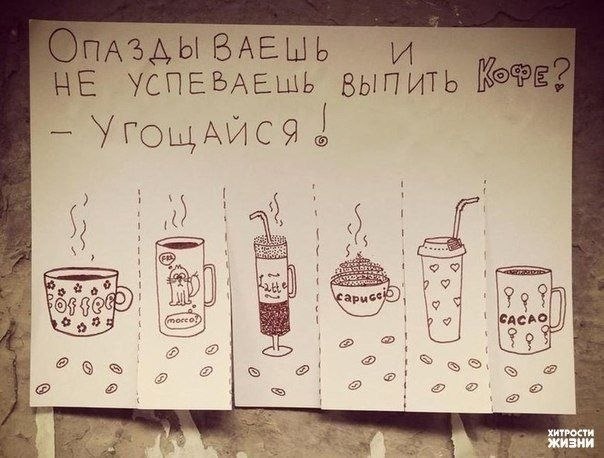 Опаздываешь и
не успеваешь выпить кофе?
- Угощайся!
coffee
FRA
mocco?
Latte
capucci
CACAO
ХИТРОСТИ
ЖИЗНИ